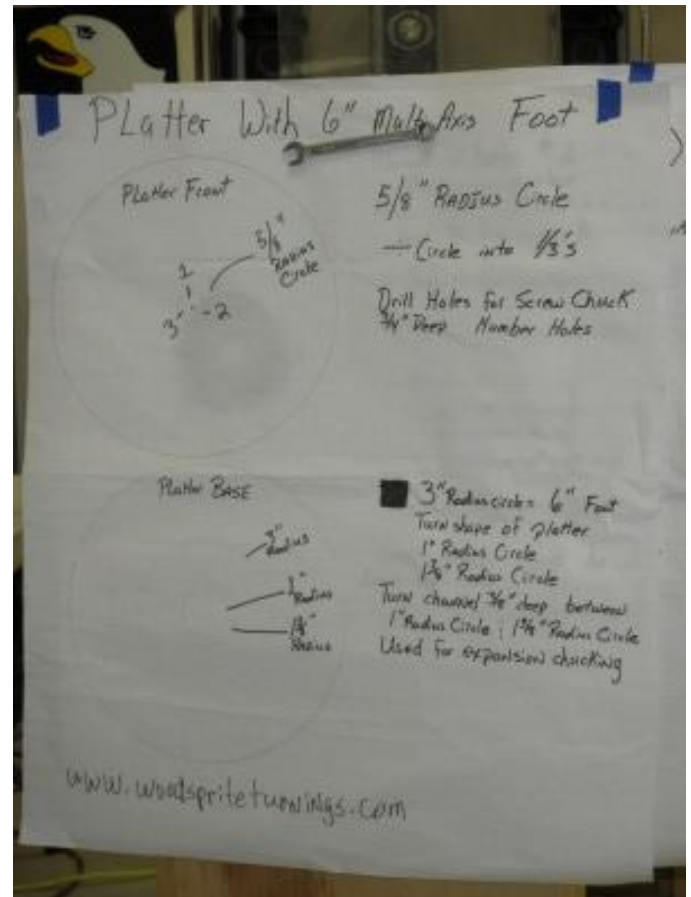 PLatter With 6" Multi Axis Foot
Platter Front
5/8"
Radius
Circle
1
3
2
5/8" Radius Circle
÷ Circle into 1/3's
Drill Holes for Screw Chuck
3/4" Deep Number Holes
Platter BASE
3"
Radius
1"
Radius
Radius
3" Radius circle = 6" Foot
Turn shape of platter
1" Radius Circle
Radius Circle
Turn channel deep between
1" Radius Circle Radius Circle
Used for expansion chucking
www.woodspriteturnings.com